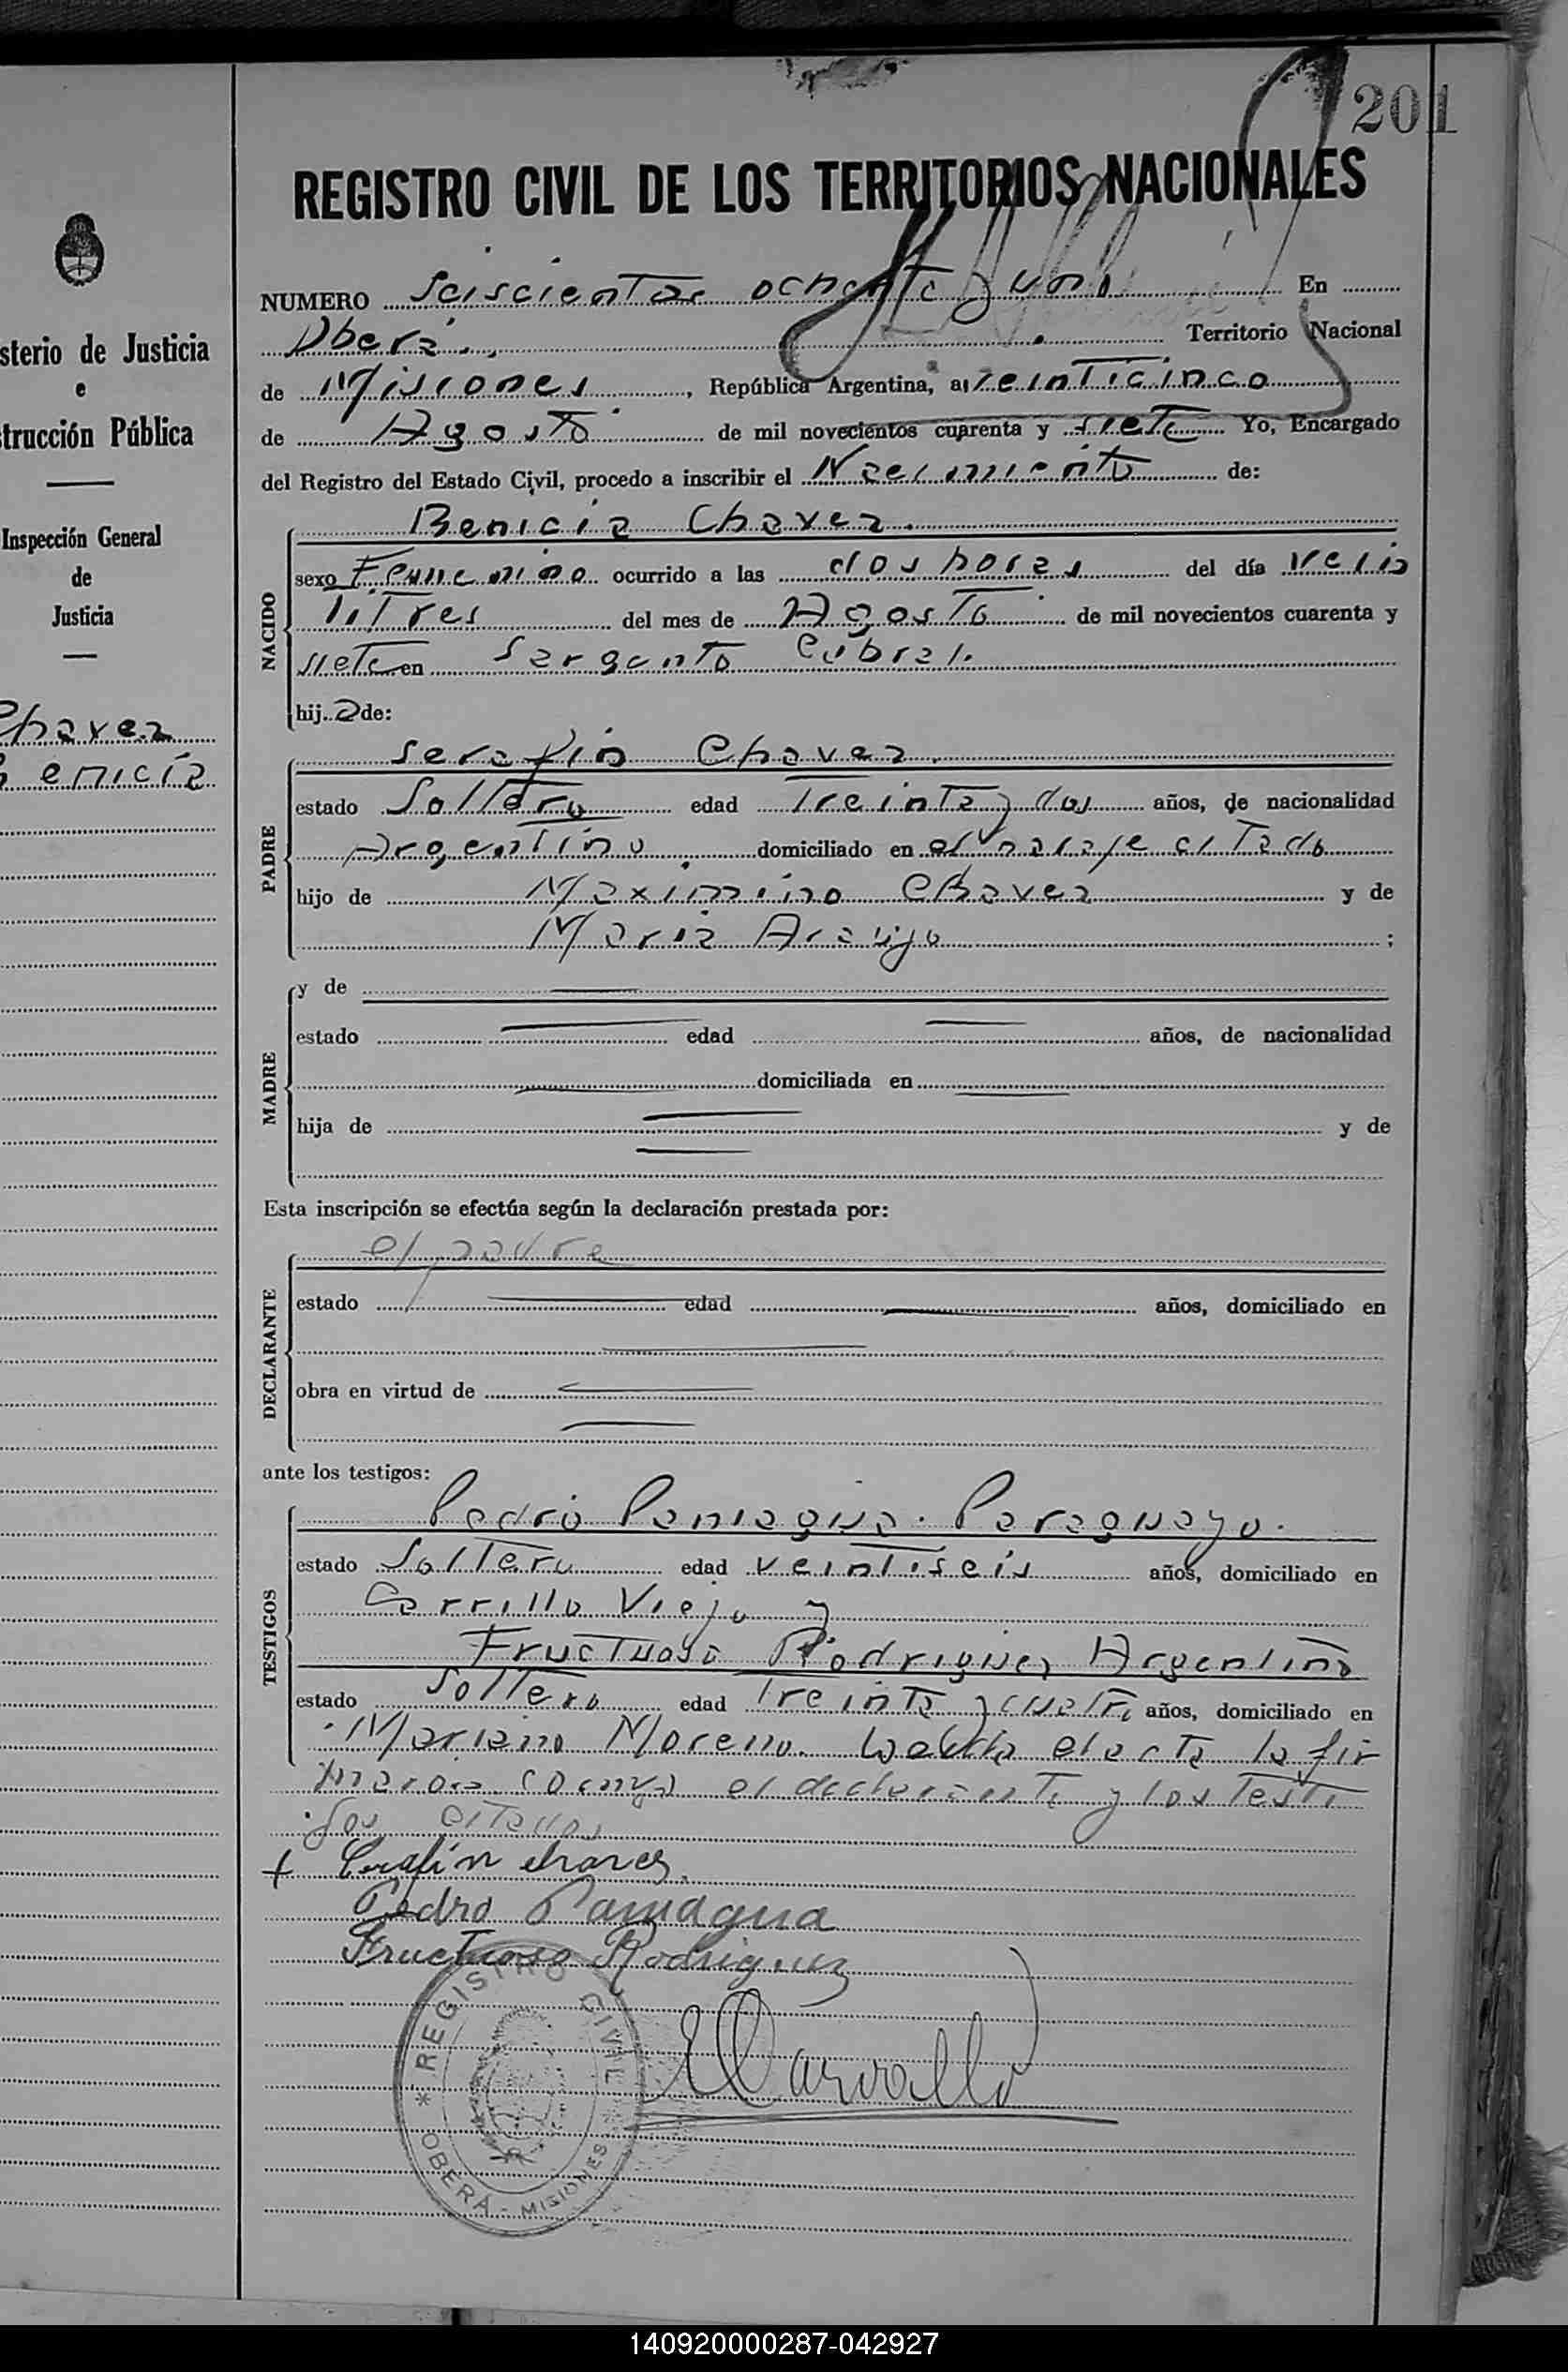 201
REGISTRO CIVIL DE LOS TERRITORIOS NACIONALES
NUMERO Seiscientos ochenta y uno En
Oberá. Territorio Nacional
de Misiones, República Argentina, a veinticinco
de Agosto de mil novecientos cuarenta y siete Yo, Encargado
del Registro del Estado Civil, procedo a inscribir el Nacimiento de:
NACIDO
Benicia Chavez.
sexo Femenino ocurrido a las dos horas del día vein
titres del mes de Agosto de mil novecientos cuarenta y
siete en Sargento Cabral.
hija de:
PADRE
Serafin Chavez.
estado Soltero edad Treinta y dos años, de nacionalidad
Argentino domiciliado en el paraje citado
hijo de Maximino Chavez y de
Maria Araujo ;
MADRE
y de
estado edad años, de nacionalidad
domiciliada en
hija de y de
Esta inscripción se efectúa según la declaración prestada por:
DECLARANTE
el padre
estado edad años, domiciliado en
obra en virtud de
ante los testigos:
TESTIGOS
Pedro Paniagua. Paraguayo.
estado Soltero edad veintiseis años, domiciliado en
Cerrillo Viejo y
Fructuoso Rodriguez Argentino
estado Soltero edad Treinta y cuatro años, domiciliado en
Mariano Moreno. el acta la fir
maron el declarante y los testi
gos citados
Serafin Chavez.
Pedro Paniagua
Fructuoso Rodriguez
REGISTRO CIVIL
* OBERÁ - MISIONES *
sterio de Justicia
e
trucción Pública
Inspección General
de
Justicia
Chavez
Benicia
140920000287-042927